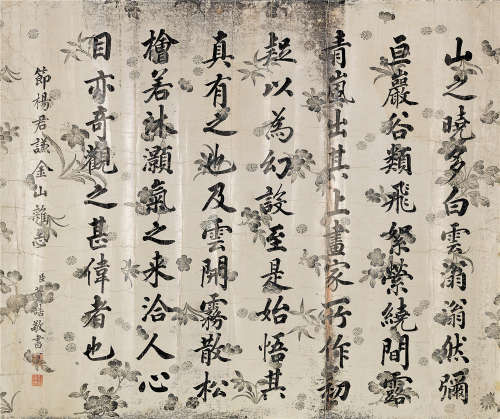 山之曉多白雲滃滃然彌
亘巖谷類飛絮縈繞間露
青嵐出其上畫家所作初
疑以為幻設至是始悟其
真有之也及雲開霧散松
檜若沐灝氣之来洽人心
目亦奇觀之甚偉者也
節楊君謙金山雜志
臣敬書